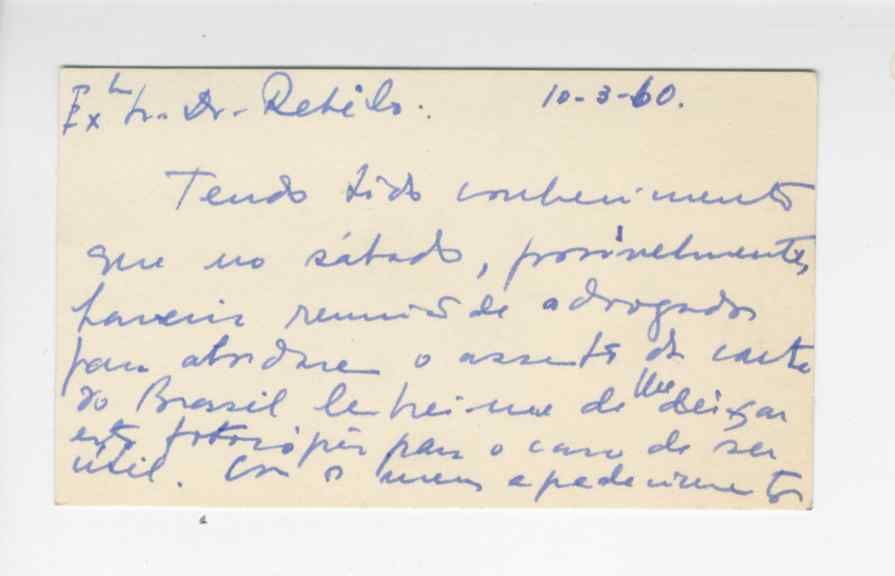 Ex.^mo Sr. Dr. Rebelo. 10-3-60.
Tendo tido conhecimento
que no sábado, possivelmente,
haveria reunião de advogados
para abordarem o assunto da carta
do Brasil lembrei-me de lhe deixar
esta fotocópia para o caso de ser
útil. Com os meus